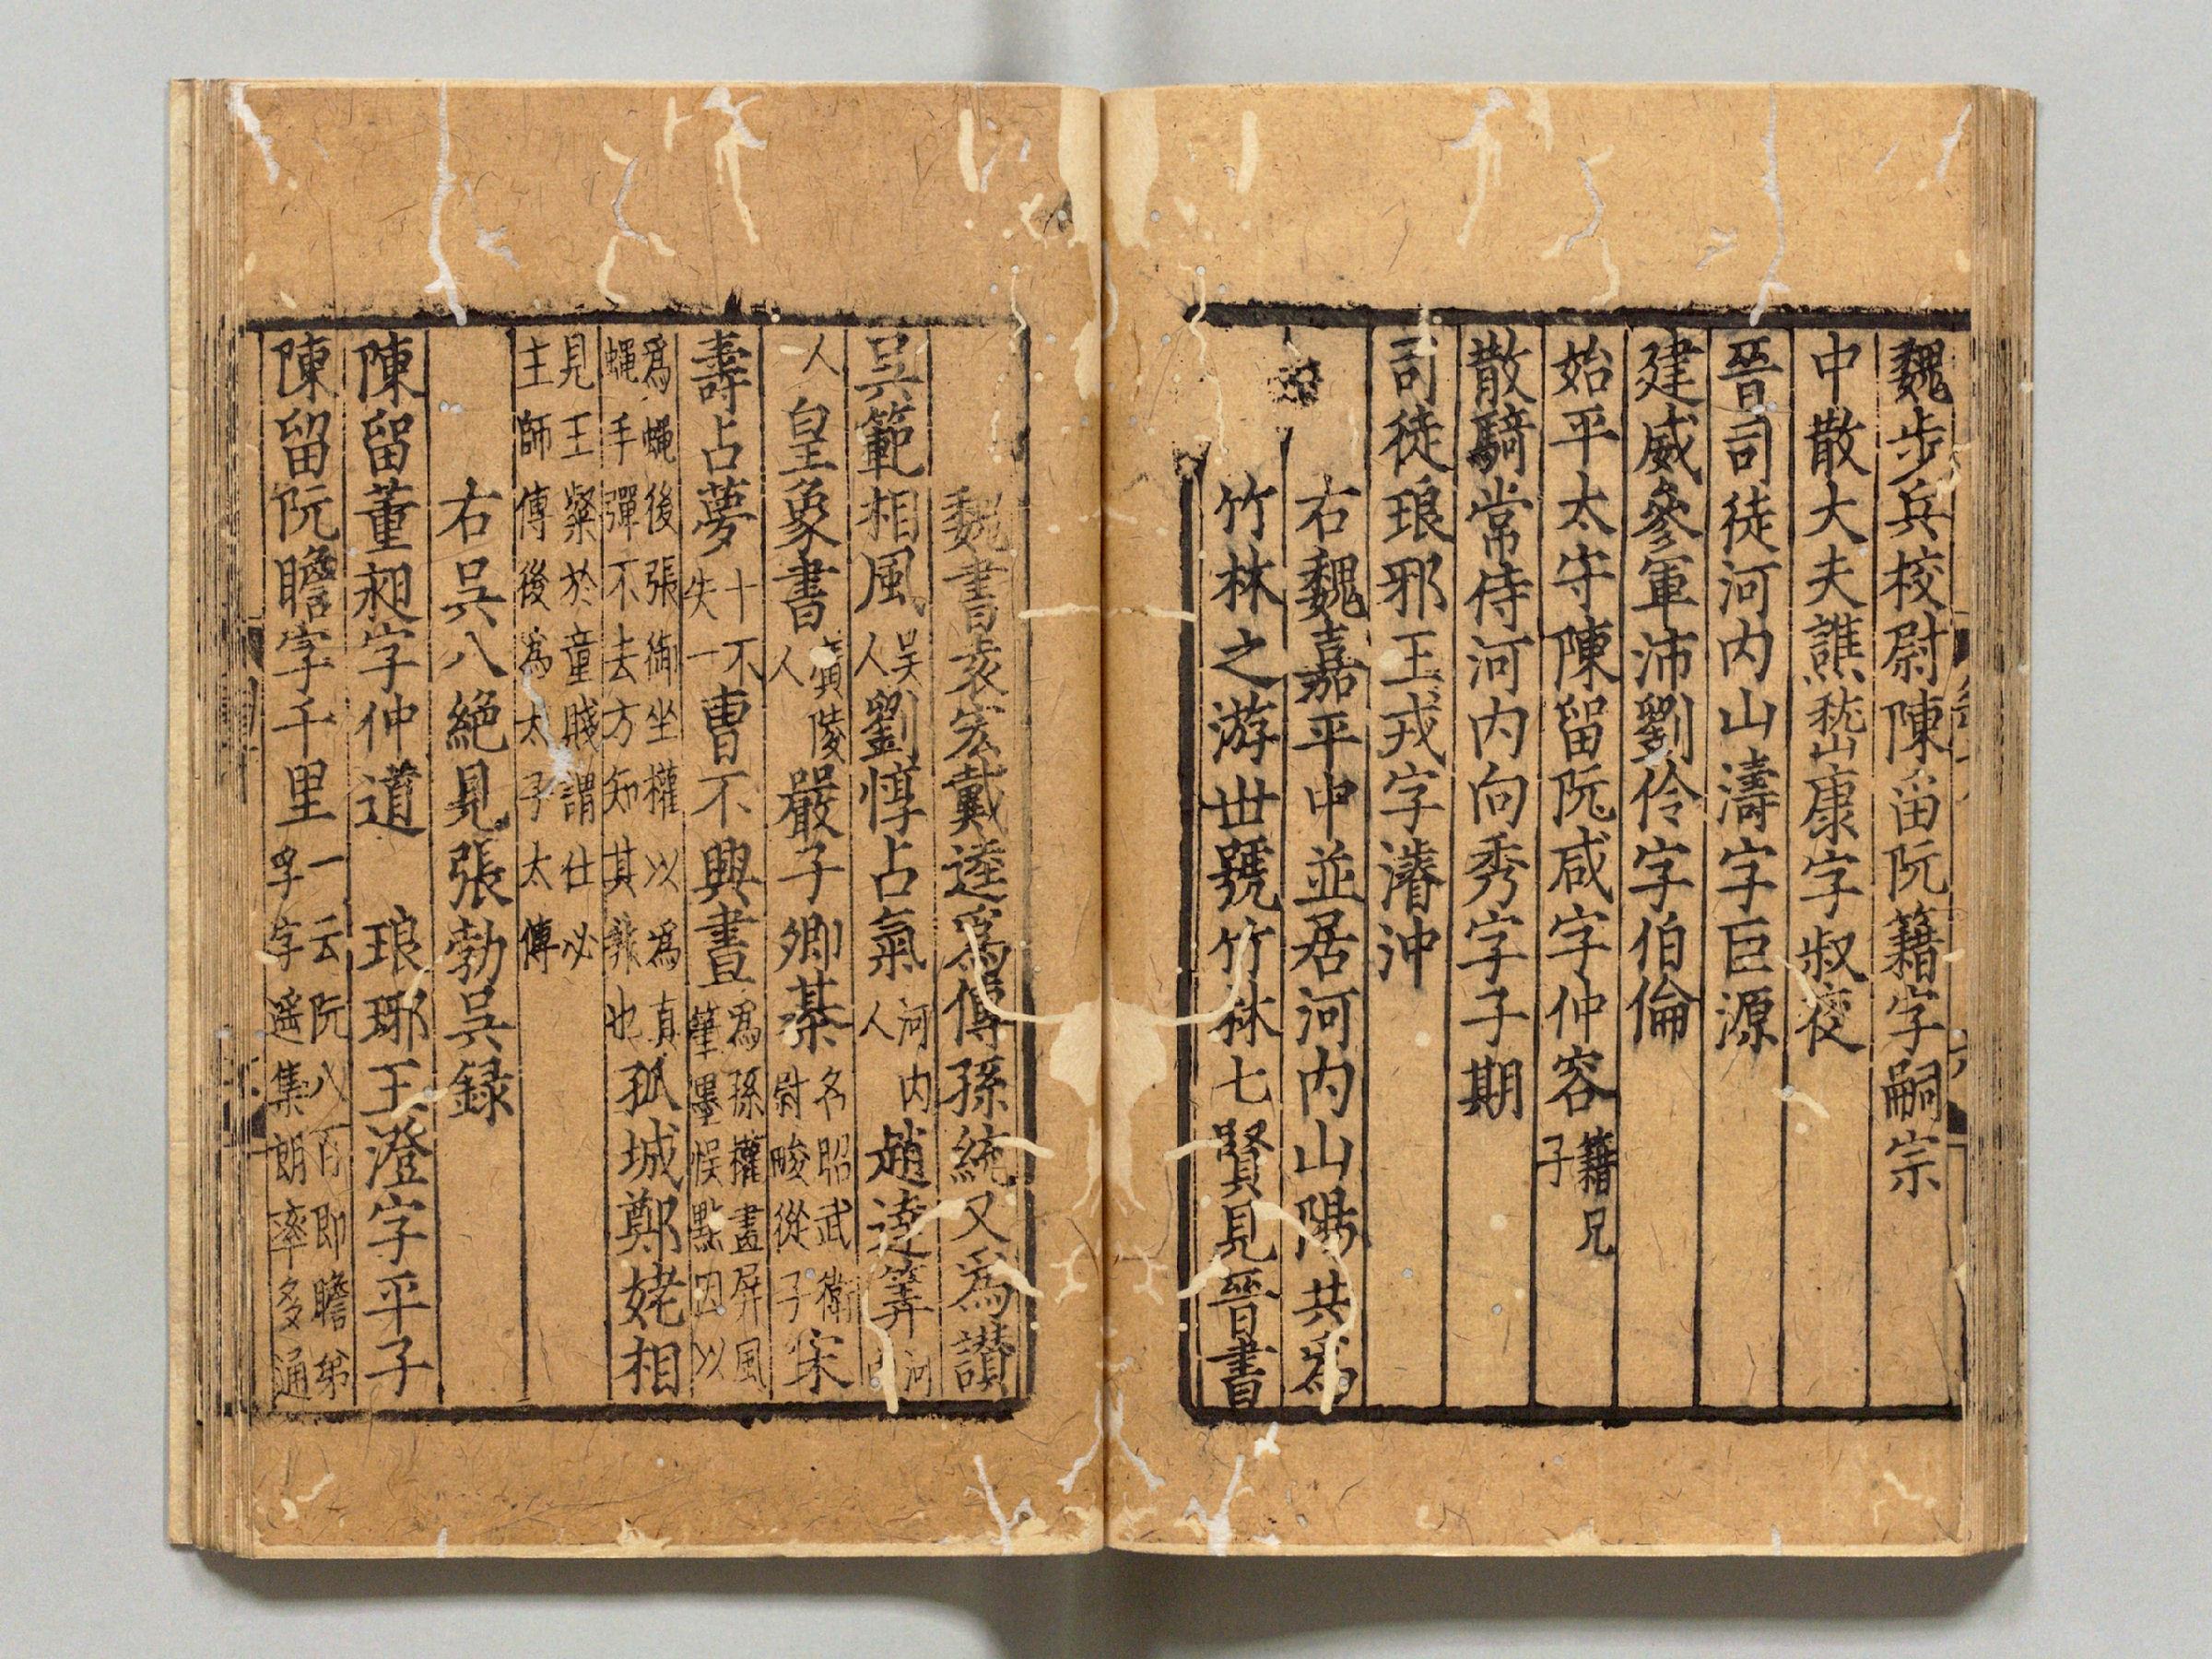 魏步兵校尉陳留阮籍字嗣宗
中散大夫譙嵇康字叔夜
晉司徒河内山濤字巨源
建威參軍沛劉伶字伯倫
始平太守陳留阮咸字仲容籍兄子
散騎常侍河内向秀字子期
司徒琅邪王戎字濬沖
右魏嘉平中並居河内山陽共為
竹林之游世號竹林七賢見晉書
魏書袁宏戴逵爲傳孫統又爲讃
吴範相風吴人劉惇占氣河内人趙達筭河
人皇象書廣陵人嚴子卿棊名昭武衛尉畯從子宋
壽占夢十不失一曹不興畫爲孫權畫屏風筆墨悮點因以
爲蠅後張御坐權以爲真蠅手彈不去方知其也孤城鄭姥相
見王粲於童賤謂仕必主師傅後為太子太傅
右吴八絶見張勃吴録
陳留董昶字仲道 琅琊王澄字平子
陳留阮瞻字千里一云阮八百即瞻弟孚字遥集朗率多通